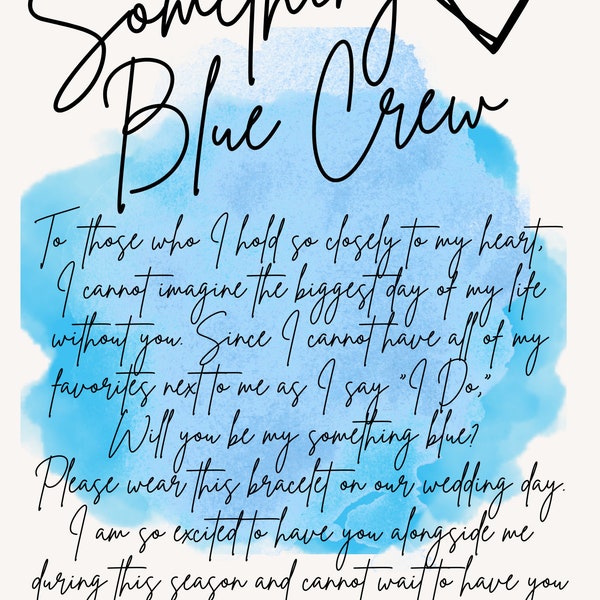 Something
Blue Crew
To those who I hold so closely to my heart,
I cannot imagine the biggest day of my life
without you. Since I cannot have all of my
favorites next to me as I say "I Do,"
Will you be my something blue?
Please wear this bracelet on our wedding day.
I am so excited to have you alongside me
during this season and cannot wait to have you